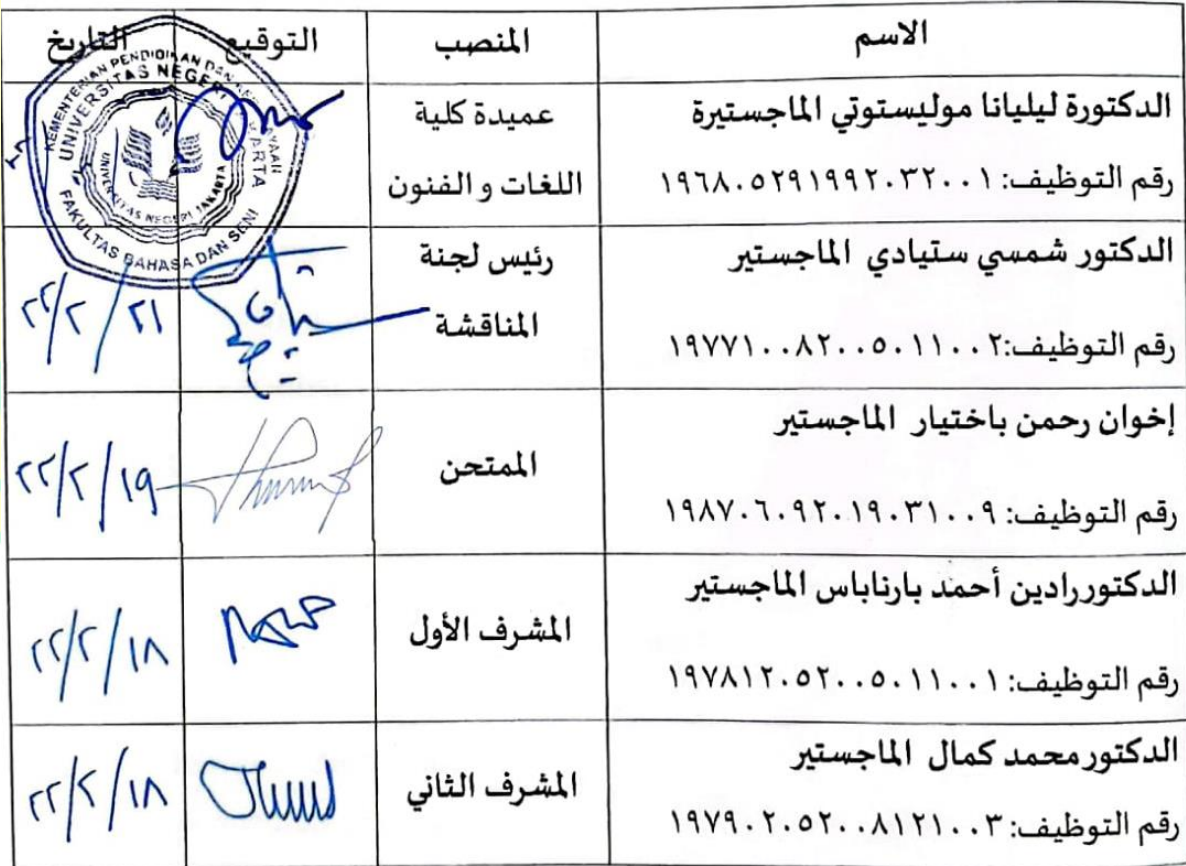 الاسم
المنصب
التوقيع
التاريخ
الدكتورة ليليانا موليستوتي الماجستيرة
رقم التوظيف: ١٩٦٨٠٥٢٩١٩٩٢٠٣٢٠٠١
عميدة كلية
اللغات و الفنون
KEMENTERIAN PENDIDIKAN DAN
UNIVERSITAS NEGERI
FAKULTAS BAHASA DAN SENI
UNIVERSITAS NEGERI JAKARTA
الدكتور شمسي ستيادي الماجستير
رقم التوظيف:١٩٧٧١٠٠٨٢٠٠٥٠١١٠٠٢
رئيس لجنة
المناقشة
٢١/٢/٢٢
إخوان رحمن باختيار الماجستير
رقم التوظيف: ١٩٨٧٠٦٠٩٢٠١٩٠٣١٠٠٩
الممتحن
١٩/٢/٢٢
الدكتوررادين أحمد بارناباس الماجستير
رقم التوظيف: ١٩٧٨١٢٠٥٢٠٠٥٠١١٠٠١
المشرف الأول
١٨/٢/٢٢
الدكتورمحمد كمال الماجستير
رقم التوظيف: ١٩٧٩٠٢٠٥٢٠٠٨١٢١٠٠٣
المشرف الثاني
١٨/٢/٢٢